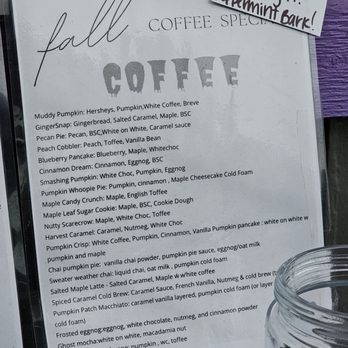 fall COFFEE SPECI
ermint Bark!
COFFEE
Muddy Pumpkin: Hersheys, Pumpkin,White Coffee, Breve
GingerSnap: Gingerbread, Salted Caramel, Maple, BSC
Pecan Pie: Pecan, BSC,White on White, Caramel sauce
Peach Cobbler: Peach, Toffee, Vanilla Bean
Blueberry Pancake: Blueberry, Maple, Whitechoc
Cinnamon Dream: Cinnamon, Eggnog, BSC
Smashing Pumpkin: White Choc, Pumpkin, Eggnog
Pumpkin Whoopie Pie: Pumpkin, cinnamon , Maple Cheesecake Cold Foam
Maple Candy Crunch: Maple, English Toffee
Maple Leaf Sugar Cookie: Maple, BSC, Cookie Dough
Nutty Scarecrow: Maple, White Choc, Toffee
Harvest Caramel: Caramel, Nutmeg, White Choc
Pumpkin Crisp: White Coffee, Pumpkin, Cinnamon, Vanilla Pumpkin pancake : white on white w
pumpkin and maple
Chai pumpkin pie: vanilla chai powder, pumpkin pie sauce, eggnog/oat milk
Sweater weather chai: liquid chai, oat milk , pumpkin cold foam
Salted Maple Latte - Salted Caramel, Maple w white coffee
Spiced Caramel Cold Brew: Caramel Sauce, French Vanilla, Nutmeg & cold brew (
Pumpkin Patch Macchiato: caramel vanilla layered, pumpkin cold foam (or
cold foam)
Frosted eggnog:eggnog, white chocolate, nutmeg, and cinnamon powder
Ghost mocha:white on white, macadamia nut
eggnog, pumpkin , wc, toffee